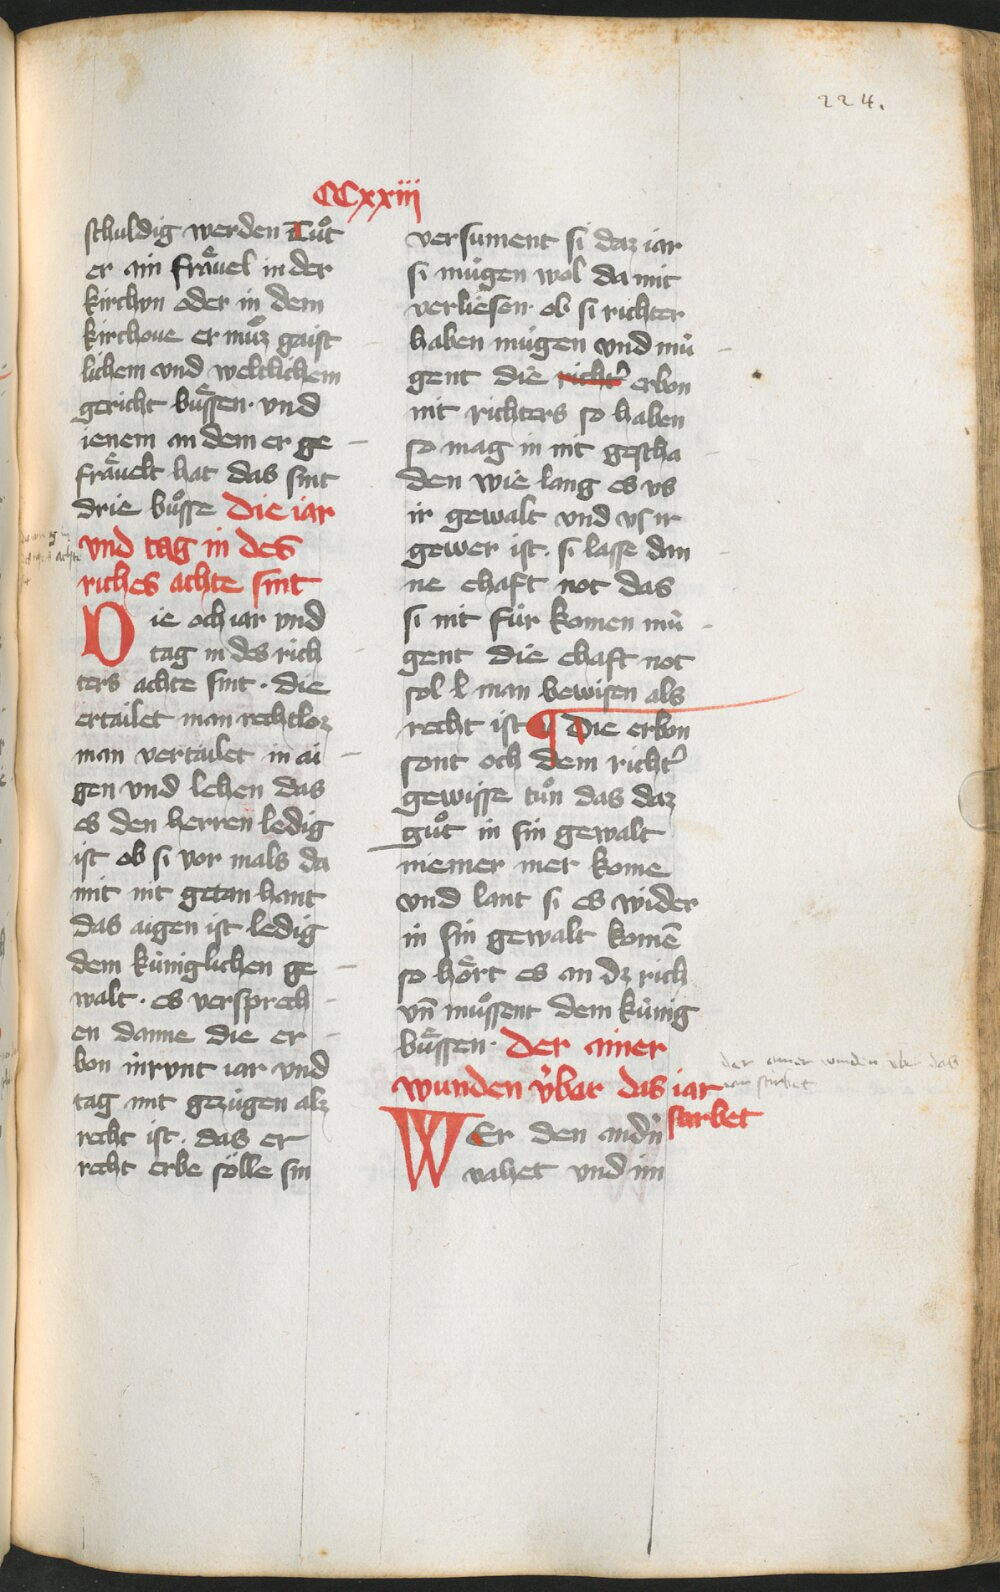 224.
CCxxiii
schuldig werden Tuͦt
er ain fraͤuel in der
kirchun oder in dem
kirchoue er muͦz gaist
lichem vnd weltlichem
gericht buͤssen· vnd
ienem an dem er ge
fraͤuelt hat das sint
drie buͦsse Die iar
vnd tag in des
riches achte sint
Die och iar vnd
tag in des rich
ters achte sint · die
ertailet man rechtloz
man vertailet in ai
gen vnd lehen das
es den herren ledig
ist ob si vor mals da
mit nit getan hant
das aigen ist ledig
dem kúniglichen ge
walt · es versprech
en danne die er
bon inrunt iar vnd
tag mit gezúgen alz
recht ist . das er
recht erbe sölle sin
versument si daz iar
si mügen wol da mit
verliesen· ob si richter
haben mügen vnd mü
gent die richt᾽ erbon
nit richters so haben
so mag in nit gescha
den wie lang es vs
ir gewalt vnd vs ir
gewer ist . si lasse dan
ne ehaft not das
si nit für komen mü
gent die ehaft not
sol man bewisen als
recht ist ¶ Die erbon
sont och dem richt᾽
gewisse tuͦn das daz
guͦt in sin gewalt
niemer mer kome
vnd lant si es wider
in sin gewalt komē
so hoͤrt es an dz rich
vn̄ muͤssent dem kúnig
buͤssen· Der ainer
wunden v́ber das iar
starbet
der ainer wunden vber das
iar starbet
WEr den andn̄
vahet vnd im